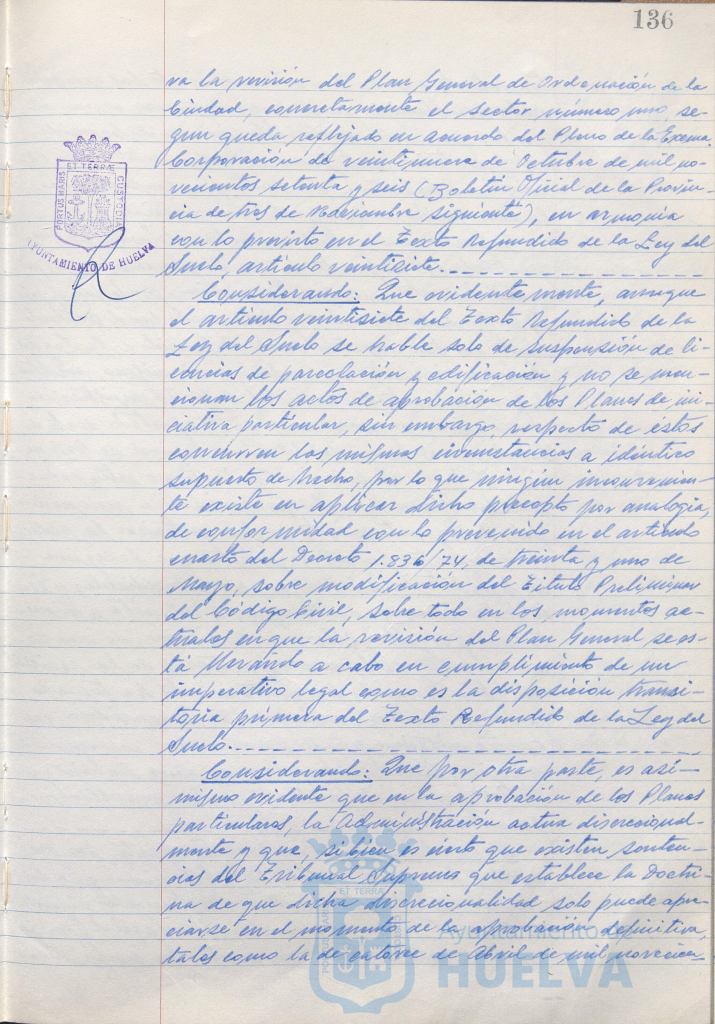 136
va la revisión del Plan General de Ordenación de la
Ciudad, concretamente el sector número uno, se-
gún queda reflejado en acuerdo del Pleno de la Excma.
Corporación de veintinueve de Octubre de mil no-
vecientos setenta y seis (Boletín Oficial de la Provin-
cia de tres de Noviembre siguiente), en armonía
con lo previsto en el Texto Refundido de la Ley del
Suelo, artículo veintisiete.
Considerando: Que evidentemente, aunque
el artículo veintisiete del Texto Refundido de la
Ley del Suelo se hable solo de suspensión de li-
cencias de parcelación y edificación y no se men-
cionan los actos de aprobación de los Planes de ini-
ciativa particular, sin embargo, respecto de éstos
concurren las mismas circunstancias a idéntico
supuesto de hecho, por lo que ningún inconvenien-
te existe en aplicar dicho precepto por analogía,
de conformidad con lo prevenido en el artículo
cuarto del Decreto 1.836/74, de treinta y uno de
Mayo, sobre modificación del Título Preliminar
del Código Civil, sobre todo en los momentos ac-
tuales en que la revisión del Plan General se es-
tá llevando a cabo en cumplimiento de un
imperativo legal como es la disposición transi-
toria primera del Texto Refundido de la Ley del
Suelo.
Considerando: Que por otra parte, es así-
mismo evidente que en la aprobación de los Planes
particulares, la Administración actua discrecional-
mente y que, si bien es cierto que existen senten-
cias del Tribunal Supremo que establece la Doctri-
na de que dicha discrecionalidad solo puede apre-
ciarse en el momento de la aprobación definitiva,
tales como la de catorce de Abril de mil novecien-
ET TERRAE
PORTUS MARIS
CUSTODIA
AYUNTAMIENTO DE HUELVA
ET TERRAE
PORTUS MARIS
Ayuntamiento
HUELVA